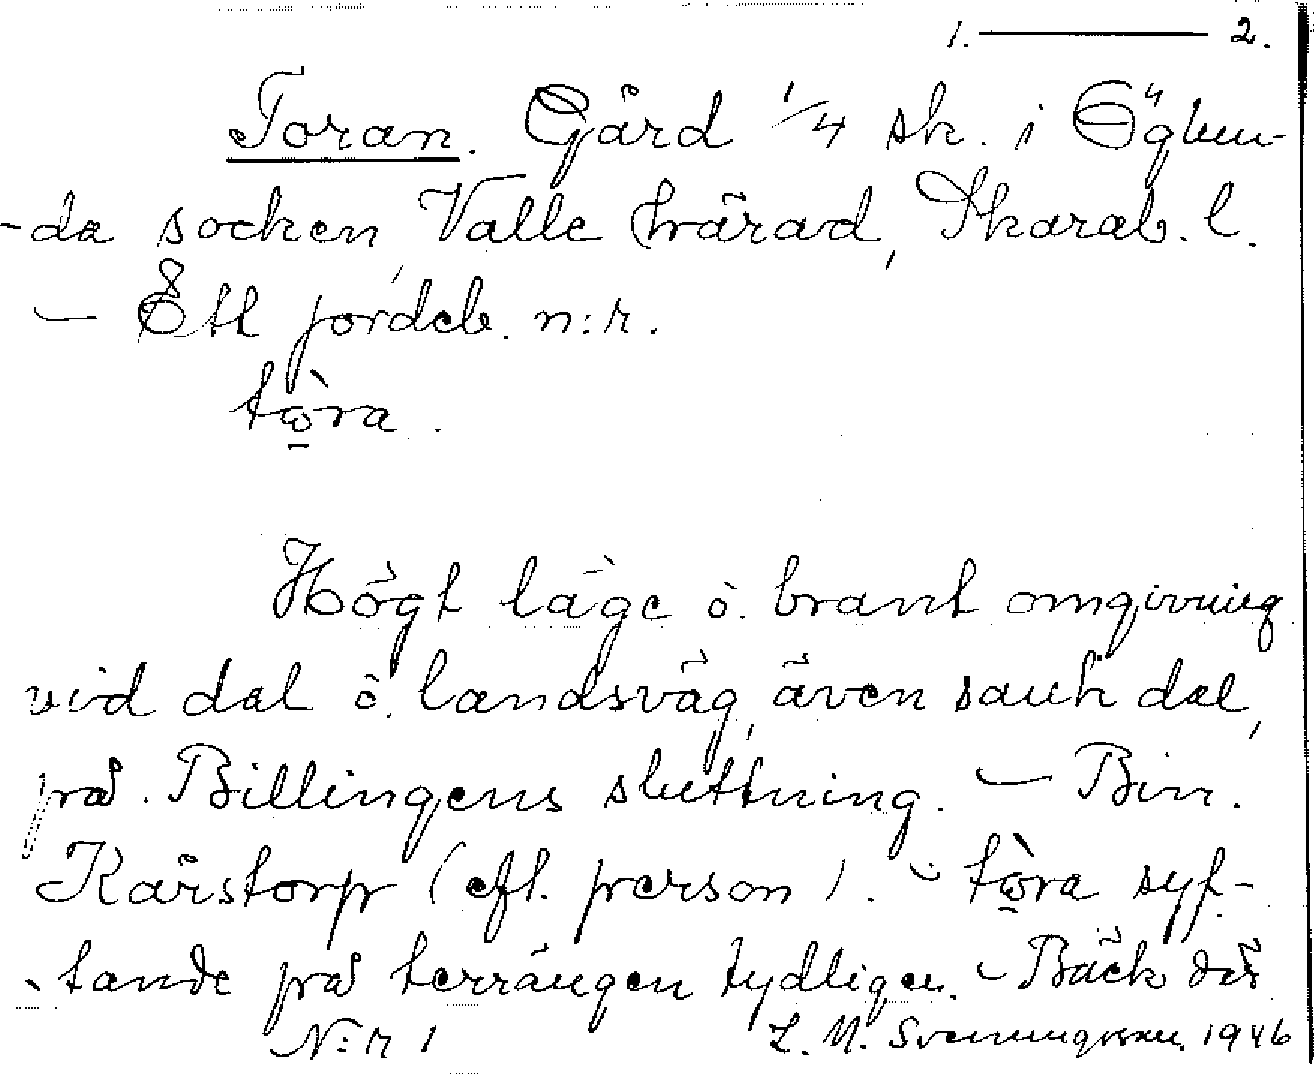 1. ——— 2.
Toran. Gård 1/4 sk. i Öglun-
-da socken, Valle härad, Skarab. l.
— Ett jordeb. n:r.
tὼ̱ra.
Högt läge o. brant omgivning
vid dal o. landsväg, även sank dal,
på Billingens sluttning. — Bin.
Kärstorp (eft. person). - tὼ̱ra syf-
-tande på terrängen tydligen. - Bäck där
N:r 1 L. M. Svenungsson 1946